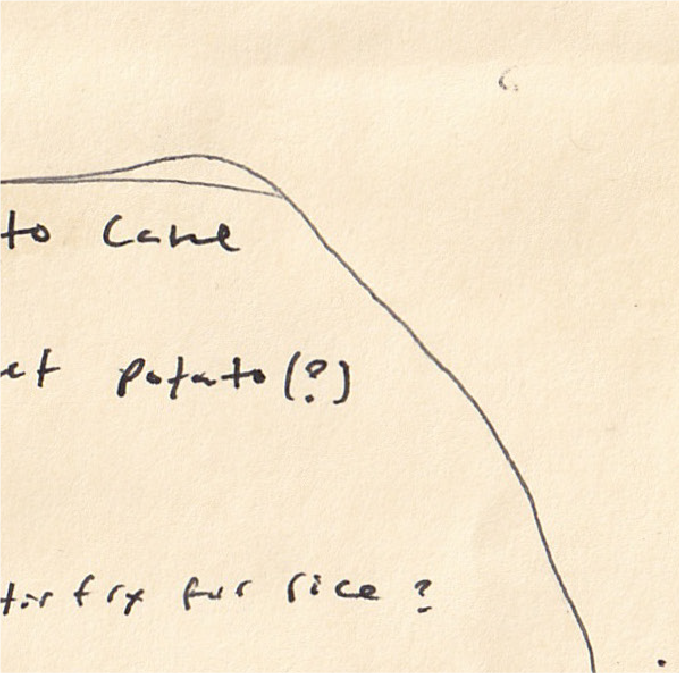 to Cane
et potato(?)
tir fry for rice?